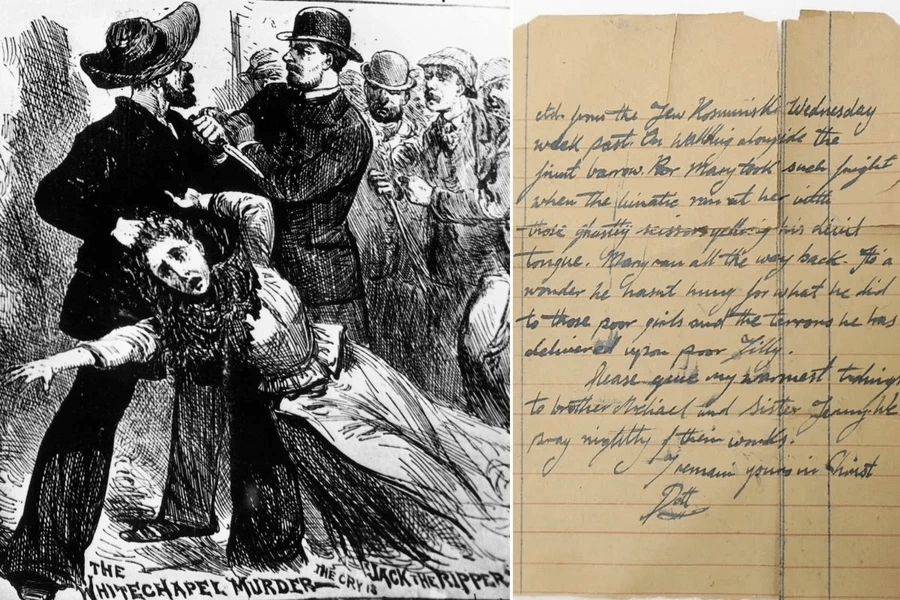 THE
WHITECHAPEL MURDER
THE CRY IS
"JACK THE RIPPER"
from the Jew Kosminski Wednesday
week past. On walking alongside the
fruit barrow. Mary took such fright
when the lunatic ran at her with
those ghastly scissors yelling his devil
tongue. Mary ran all the way back. Its a
wonder he hasnt hung for what he did
to those poor girls and the terrors he has
delivered upon poor Tilly.
Please give my warmest tidings
to brother Michael and sister Jenny. We
pray nightly their
I remain yours in Christ